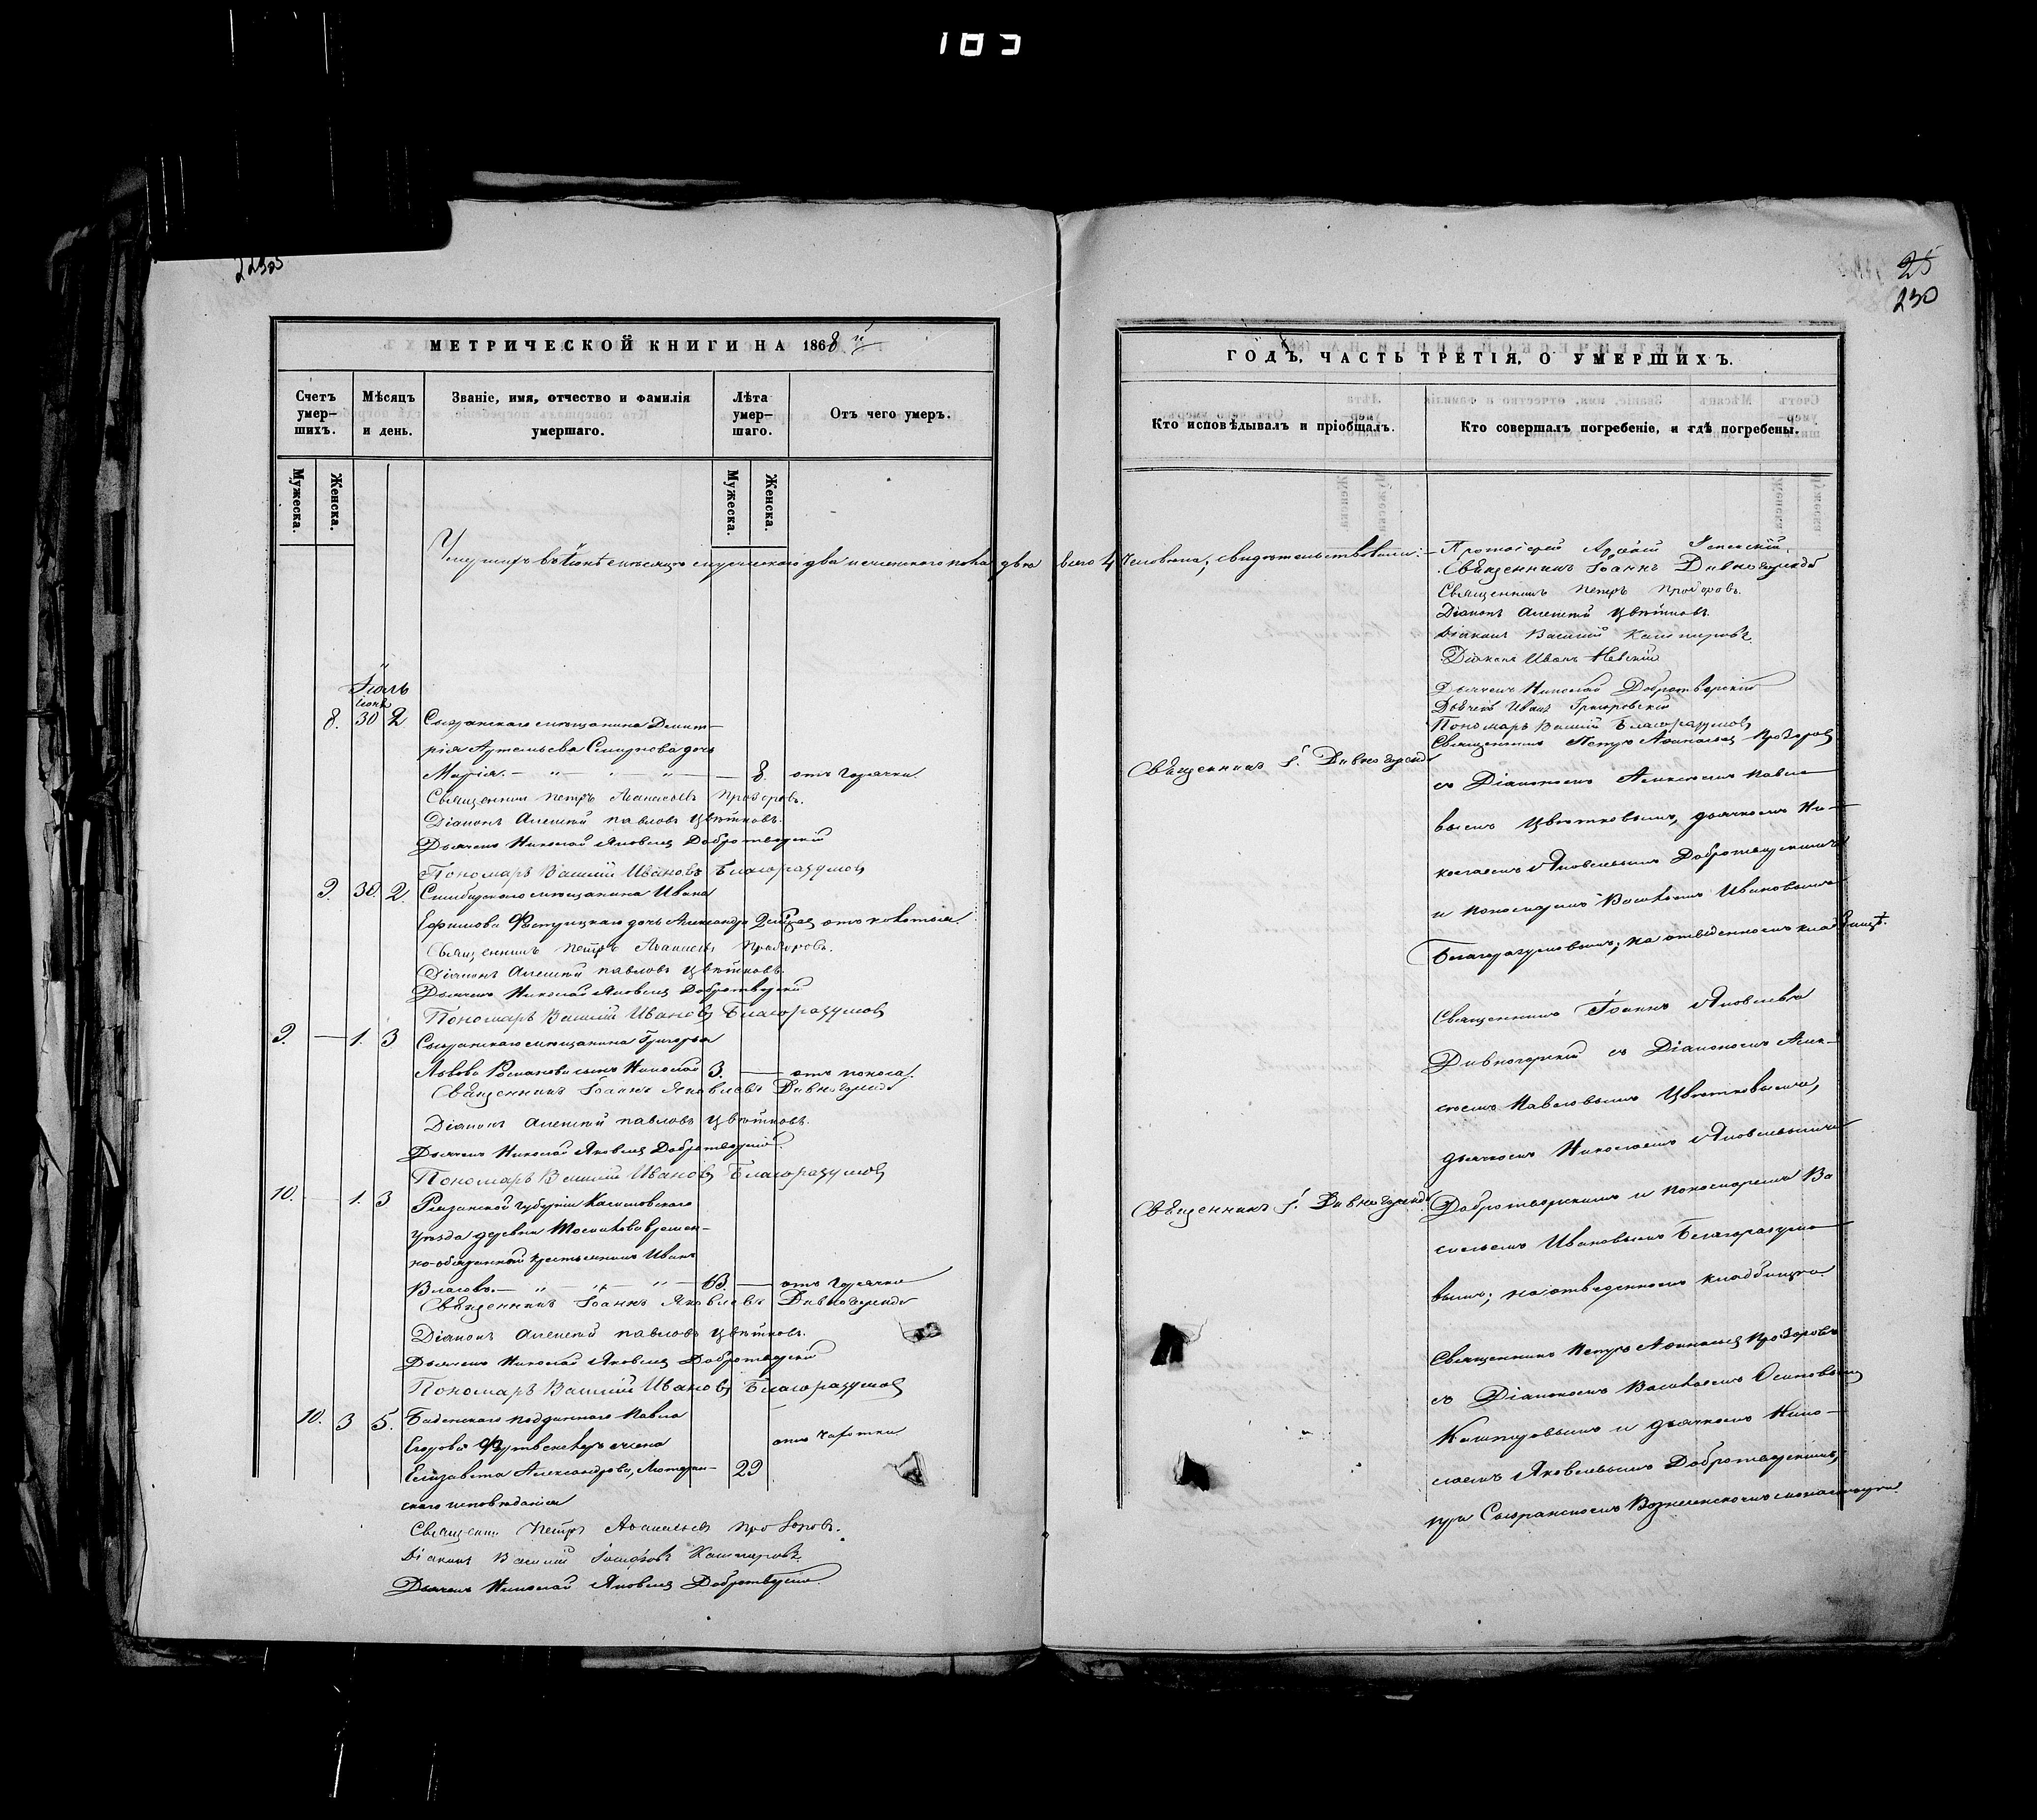 103
25
230
МЕТРИЧЕСКОЙ КНИГИ НА 1868й
ГОДЪ, ЧАСТЬ ТРЕТІЯ, О УМЕРШИХЪ.
Счетъ умер-шихъ.
Мѣсяцъ и день.
Званіе, имя, отчество и фамилія умершаго.
Лѣта умер-шаго.
Отъ чего умеръ.
Мужеска.
Женска.
Мужеска.
Женска.
Умершихъ въ Іюнѣ мѣсяцѣ мужескаго два и женскаго пола два всего 4
Іюль
іюня
8. 30 2 Сызранскаго мѣщанина Димит-
рія Артемьева Смирнова дочь
Марія. 8. отъ горячки.
Священникъ Петръ Аѳанасьевъ Прозоровъ.
Діаконъ Алексѣй Павловъ Цвѣтковъ.
Дьячекъ Николай Яковлевъ Добротворскій
Пономарь Василій Ивановъ Благоразумовъ
9. 30. 2. Симбирскаго мѣщанина Ивана
Ефимова дочь Александра отъ коклюша.
Священникъ Петръ Аѳанасьевъ Прозоровъ.
Діаконъ Алексѣй Павловъ Цвѣтковъ.
Дьячекъ Николай Яковлевъ Добротворскій
Пономарь Василій Ивановъ Благоразумовъ
9. 1. 3 Сызранскаго мѣщанина Григорья
Львова Романова сынъ Николай 3. отъ поноса.
Священникъ Іоаннъ Яковлевъ Дивногорскій
Діаконъ Алексѣй Павловъ Цвѣтковъ.
Дьячекъ Николай Яковлевъ Добротворскій.
Пономарь Василій Ивановъ Благоразумовъ
10. 1. 3 Рязанской губерніи Касимовскаго
уѣзда деревни времен-
но-обязанной крестьянинъ Иванъ
Власовъ. 63. отъ горячки
Священникъ Іоаннъ Яковлевъ Дивногорскій
Діаконъ Алексѣй Павловъ Цвѣтковъ.
Дьячекъ Николай Яковлевъ Добротворскій
Пономарь Василій Ивановъ Благоразумовъ
10. 3 5. Баденскаго подданнаго Павла
Егорова жена
Елизавета Александрова, Лютеран- 29 отъ чахотки
скаго исповѣданія
Священникъ Петръ Аѳанасьевъ Прозоровъ.
Діаконъ Василій Іосифовъ Кашпировъ.
Дьячекъ Николай Яковлевъ Добротворскій.
Кто исповѣдывалъ и пріобщалъ.
Кто совершалъ погребеніе, и гдѣ погребены.
человѣка; свидѣтельствовали:
Протоіерей Успенскій.
Священникъ Іоаннъ Дивногорскій
Священникъ Петръ Прозоровъ.
Діаконъ Алексѣй Цвѣтковъ.
Діаконъ Василій Кашпировъ.
Діаконъ Иванъ Невскій
Дьячекъ Николай Добротворскій
Дьячекъ Иванъ Григоровскій
Пономарь Василій Благоразумовъ
Священникъ І. Дивногорскій
Священникъ Петръ Аѳанасьевъ Прозоровъ
съ Діакономъ Алексѣемъ Павло-
вымъ Цвѣтковымъ, дьячкомъ Ни-
колаемъ Яковлевымъ Добротворскимъ
и пономаремъ Васильемъ Ивановымъ
Благоразумовымъ; на отведенномъ кладбищѣ.
Священникъ Іоаннъ Яковлевъ
Дивногорскій съ Діакономъ Алек-
сѣемъ Павловымъ Цвѣтковымъ,
дьячкомъ Николаемъ Яковлевымъ
Священникъ І. Дивногорскій.
Добротворскимъ и пономаремъ Ва-
сильемъ Ивановымъ Благоразумо-
вымъ; на отведенномъ кладбищѣ.
Священникъ Петръ Аѳанасьевъ Прозоровъ
съ Діакономъ Васильемъ Осиповымъ
Кашпировымъ и дьячкомъ Нико-
лаемъ Яковлевымъ Добротворскимъ,
при Сызранскомъ Вознесенскомъ монастырѣ.